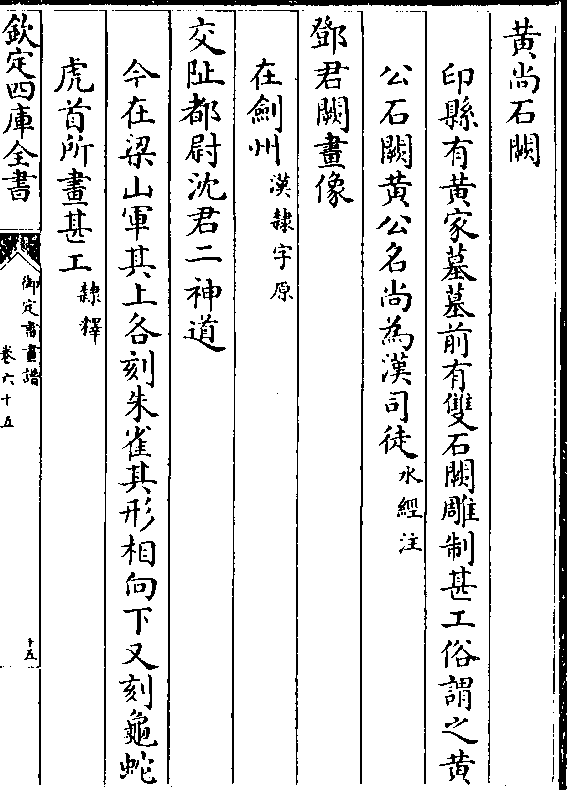 黄尚石闕
印縣有黄家墓墓前有雙石闕雕制甚工俗謂之黄
公石闕黄公名尚為漢司徒水經注
鄧君闕畫像
在劍州漢隷字原
交阯都尉沈君二神道
今在梁山軍其上各刻朱雀其形相向下又刻龜蛇
虎首所畫甚工隷釋
欽定四庫全書
御定書畫譜
卷六十五
十五